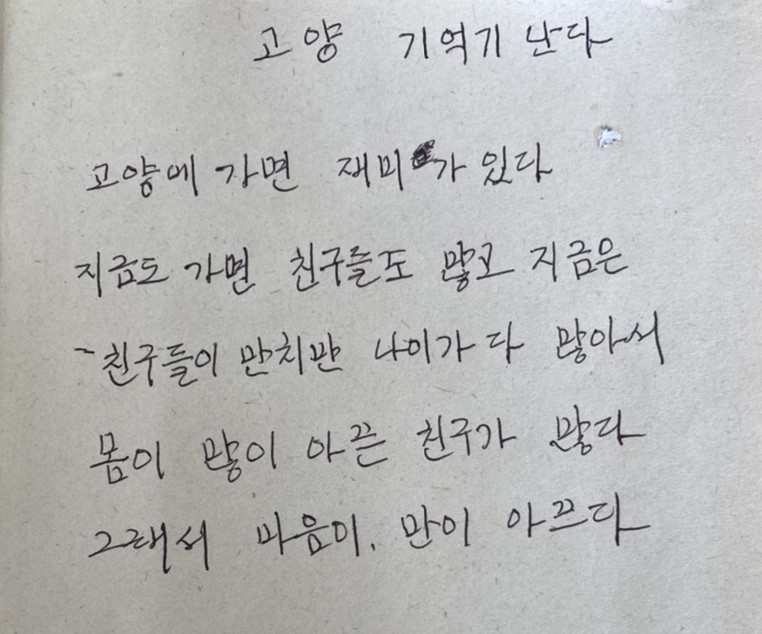 고양 기억기 난다
고양에 가면 재미가 있다
지금도 가면 친구들도 많고 지금은
친구들이 만치만 나이가 다 많아서
몸이 많이 아끈 친구가 많다
그래서 마음이. 만이 아끄다